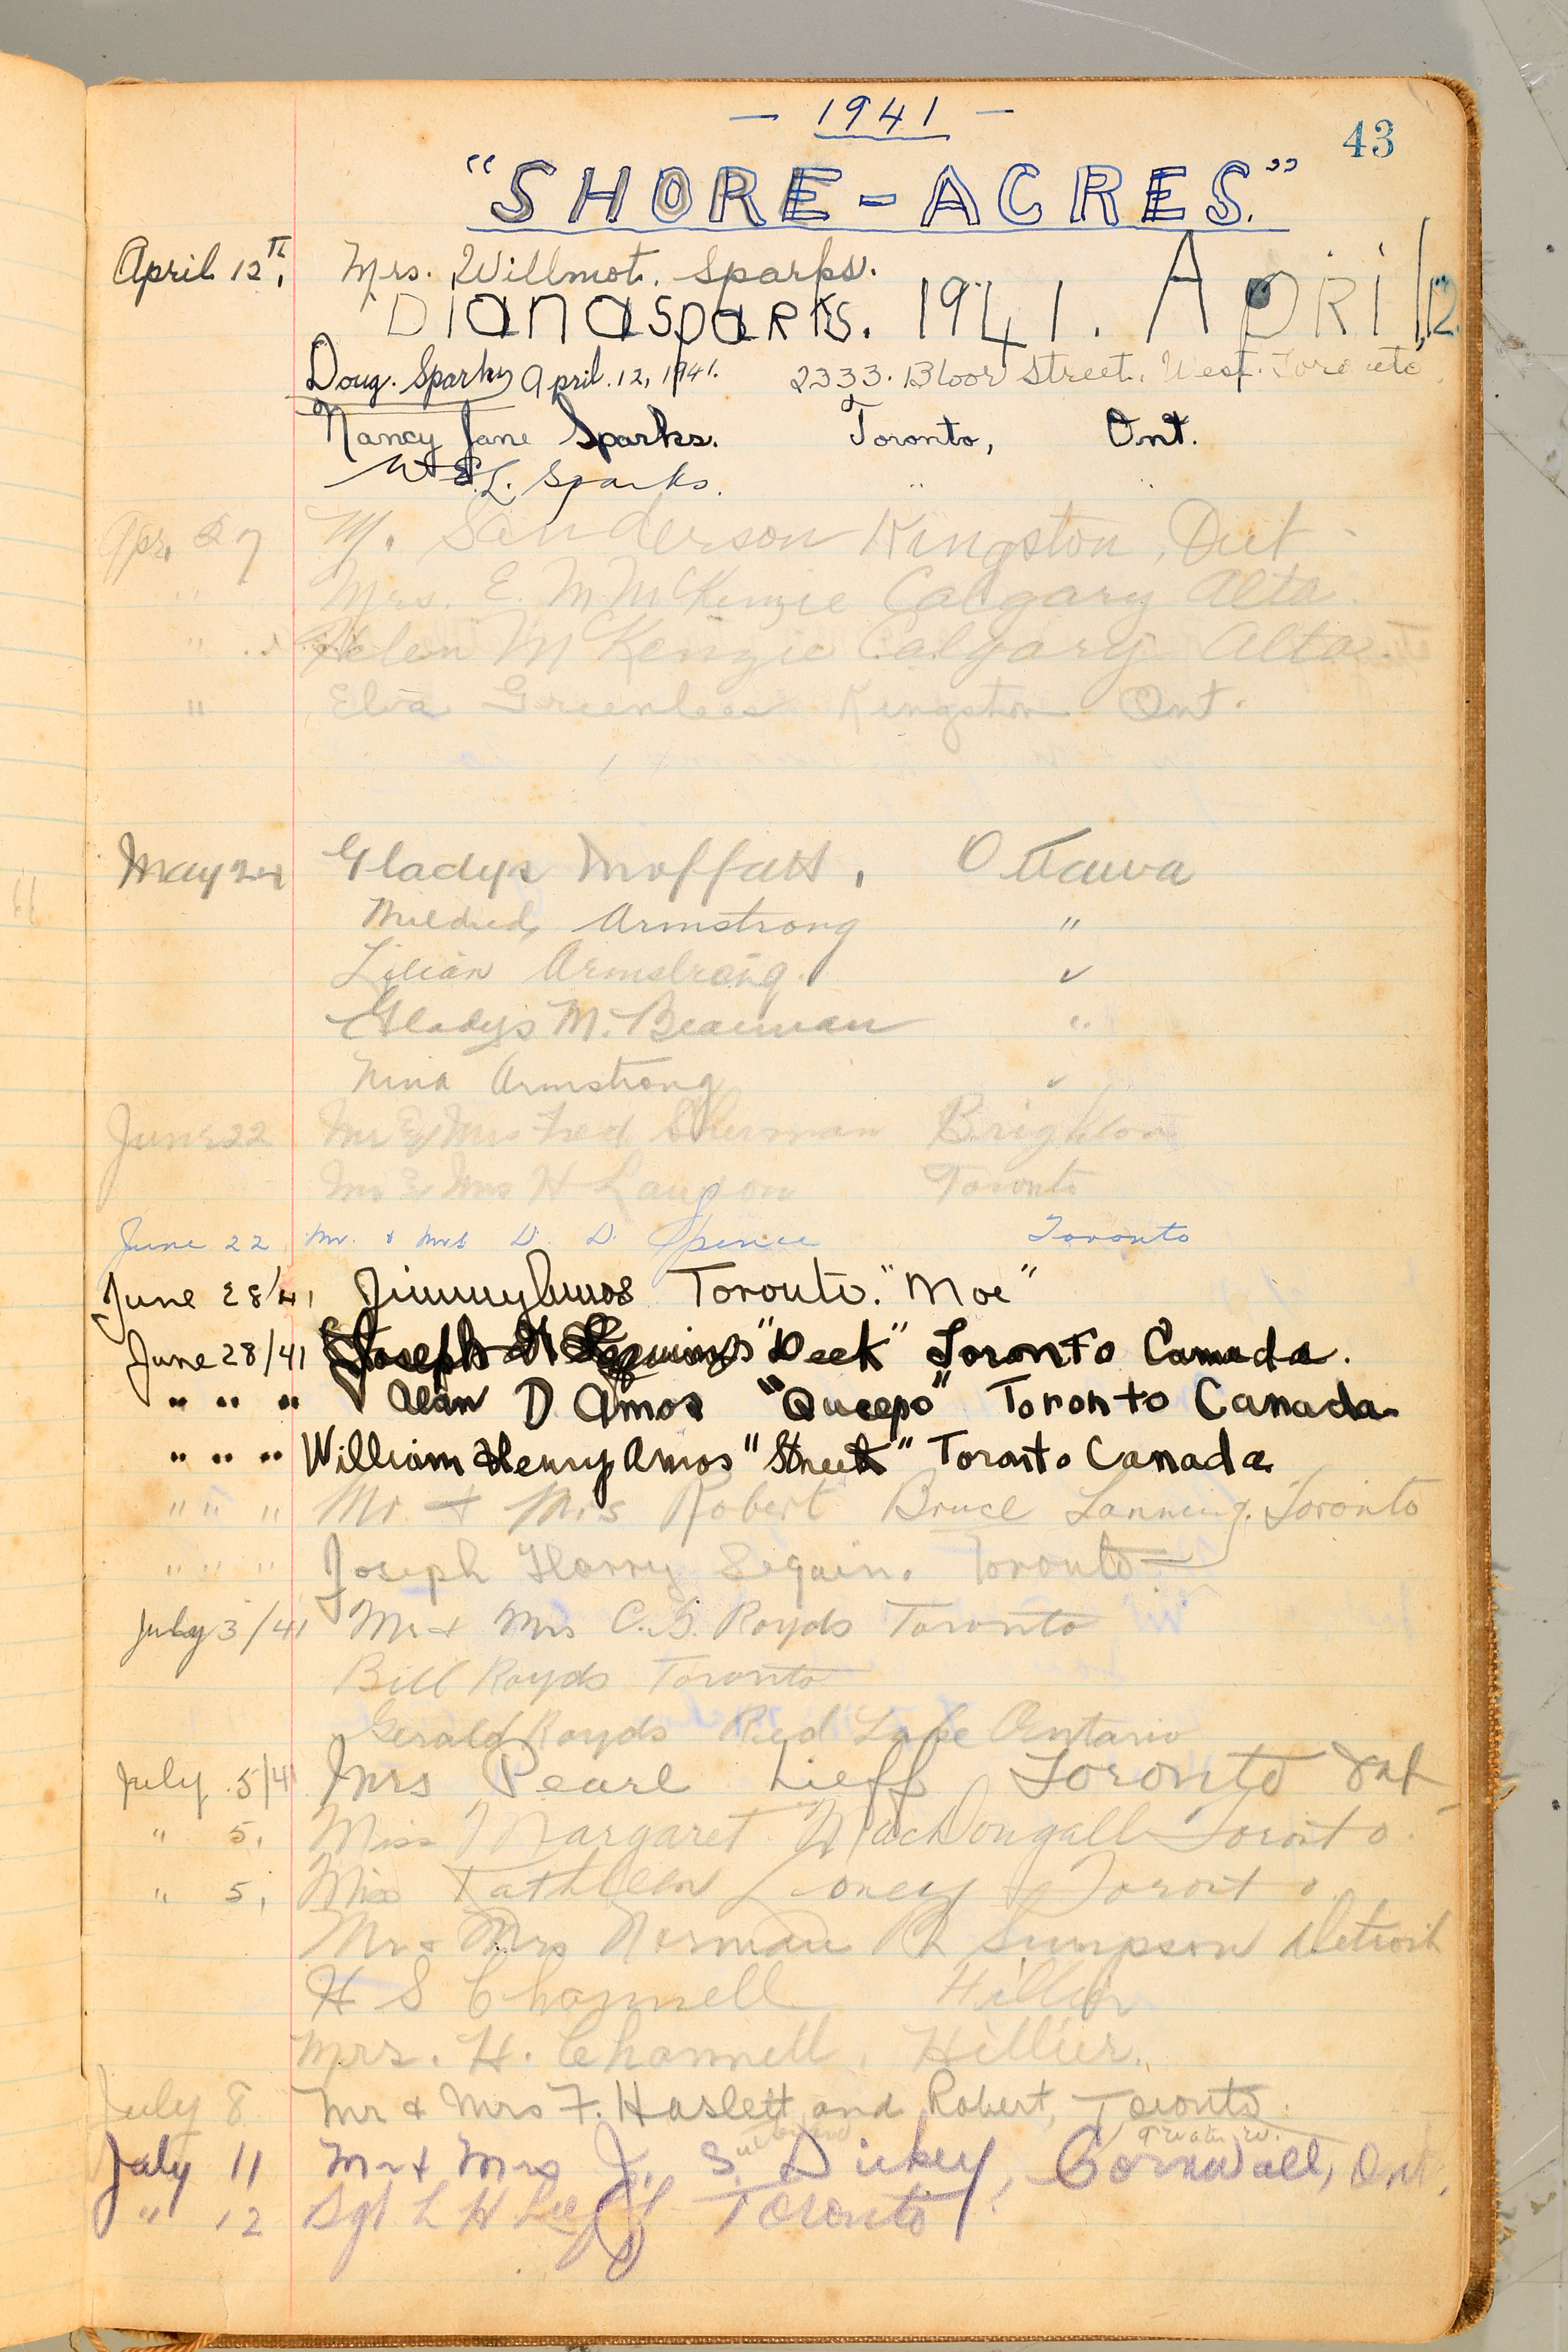 — 1941 —
43
"SHORE-ACRES."
April 12th, Mrs. Willmot. Sparks.
Diana Sparks. 1941. April 12
Doug. Sparks April. 12, 1941. 2333. Bloor Street. West. Toronto
Nancy Jane Sparks. Toronto, Ont.
W. E. L. Sparks. " "
Apr. 27 M. Sanderson Kingston, Ont
" Mrs. E. M. McKenzie Calgary Alta.
" Helen McKenzie Calgary Alta.
" Elva Greenlees Kingston Ont.
May 24 Gladys Moffatt, Ottawa
Mildred Armstrong "
Lilian Armstrong. "
Gladys M. Beaman "
Nina Armstrong "
June 22 Mr & Mrs Fred Sherman Brighton
Mr & Mrs H Langdon Toronto
June 22 Mr. & Mrs D. D. Spence Toronto
June 28/41 Jimmy Amos Toronto. "Moe"
June 28/41 Joseph H "Deek" Toronto Canada.
" " " Alan D Amos "Queepo" Toronto Canada
" " " William Henry Amos "Street" Toronto Canada
" " " Mr. & Mrs Robert Bruce Lanning. Toronto
" " " Joseph Harry Seguin. Toronto
July 3/41 Mr & Mrs C. G. Royds Toronto
Bill Royds Toronto
Gerald Royds Red Lake Ontario
July 5/41 Mrs Pearl Lieff Toronto Ont
" 5, Miss Margaret MacDougall Toronto.
" 5, Miss Kathleen Looney Toronto.
Mr & Mrs Norman R Simpson Detroit
H S Channell Hillier
Mrs. H. Channell, Hillier.
July 8 Mr & Mrs F. Haslett and Robert, Toronto.
July 11 Mr & Mrs J. S. Dickey, Cornwall, Ont.
" 12 Sgt L H Toronto